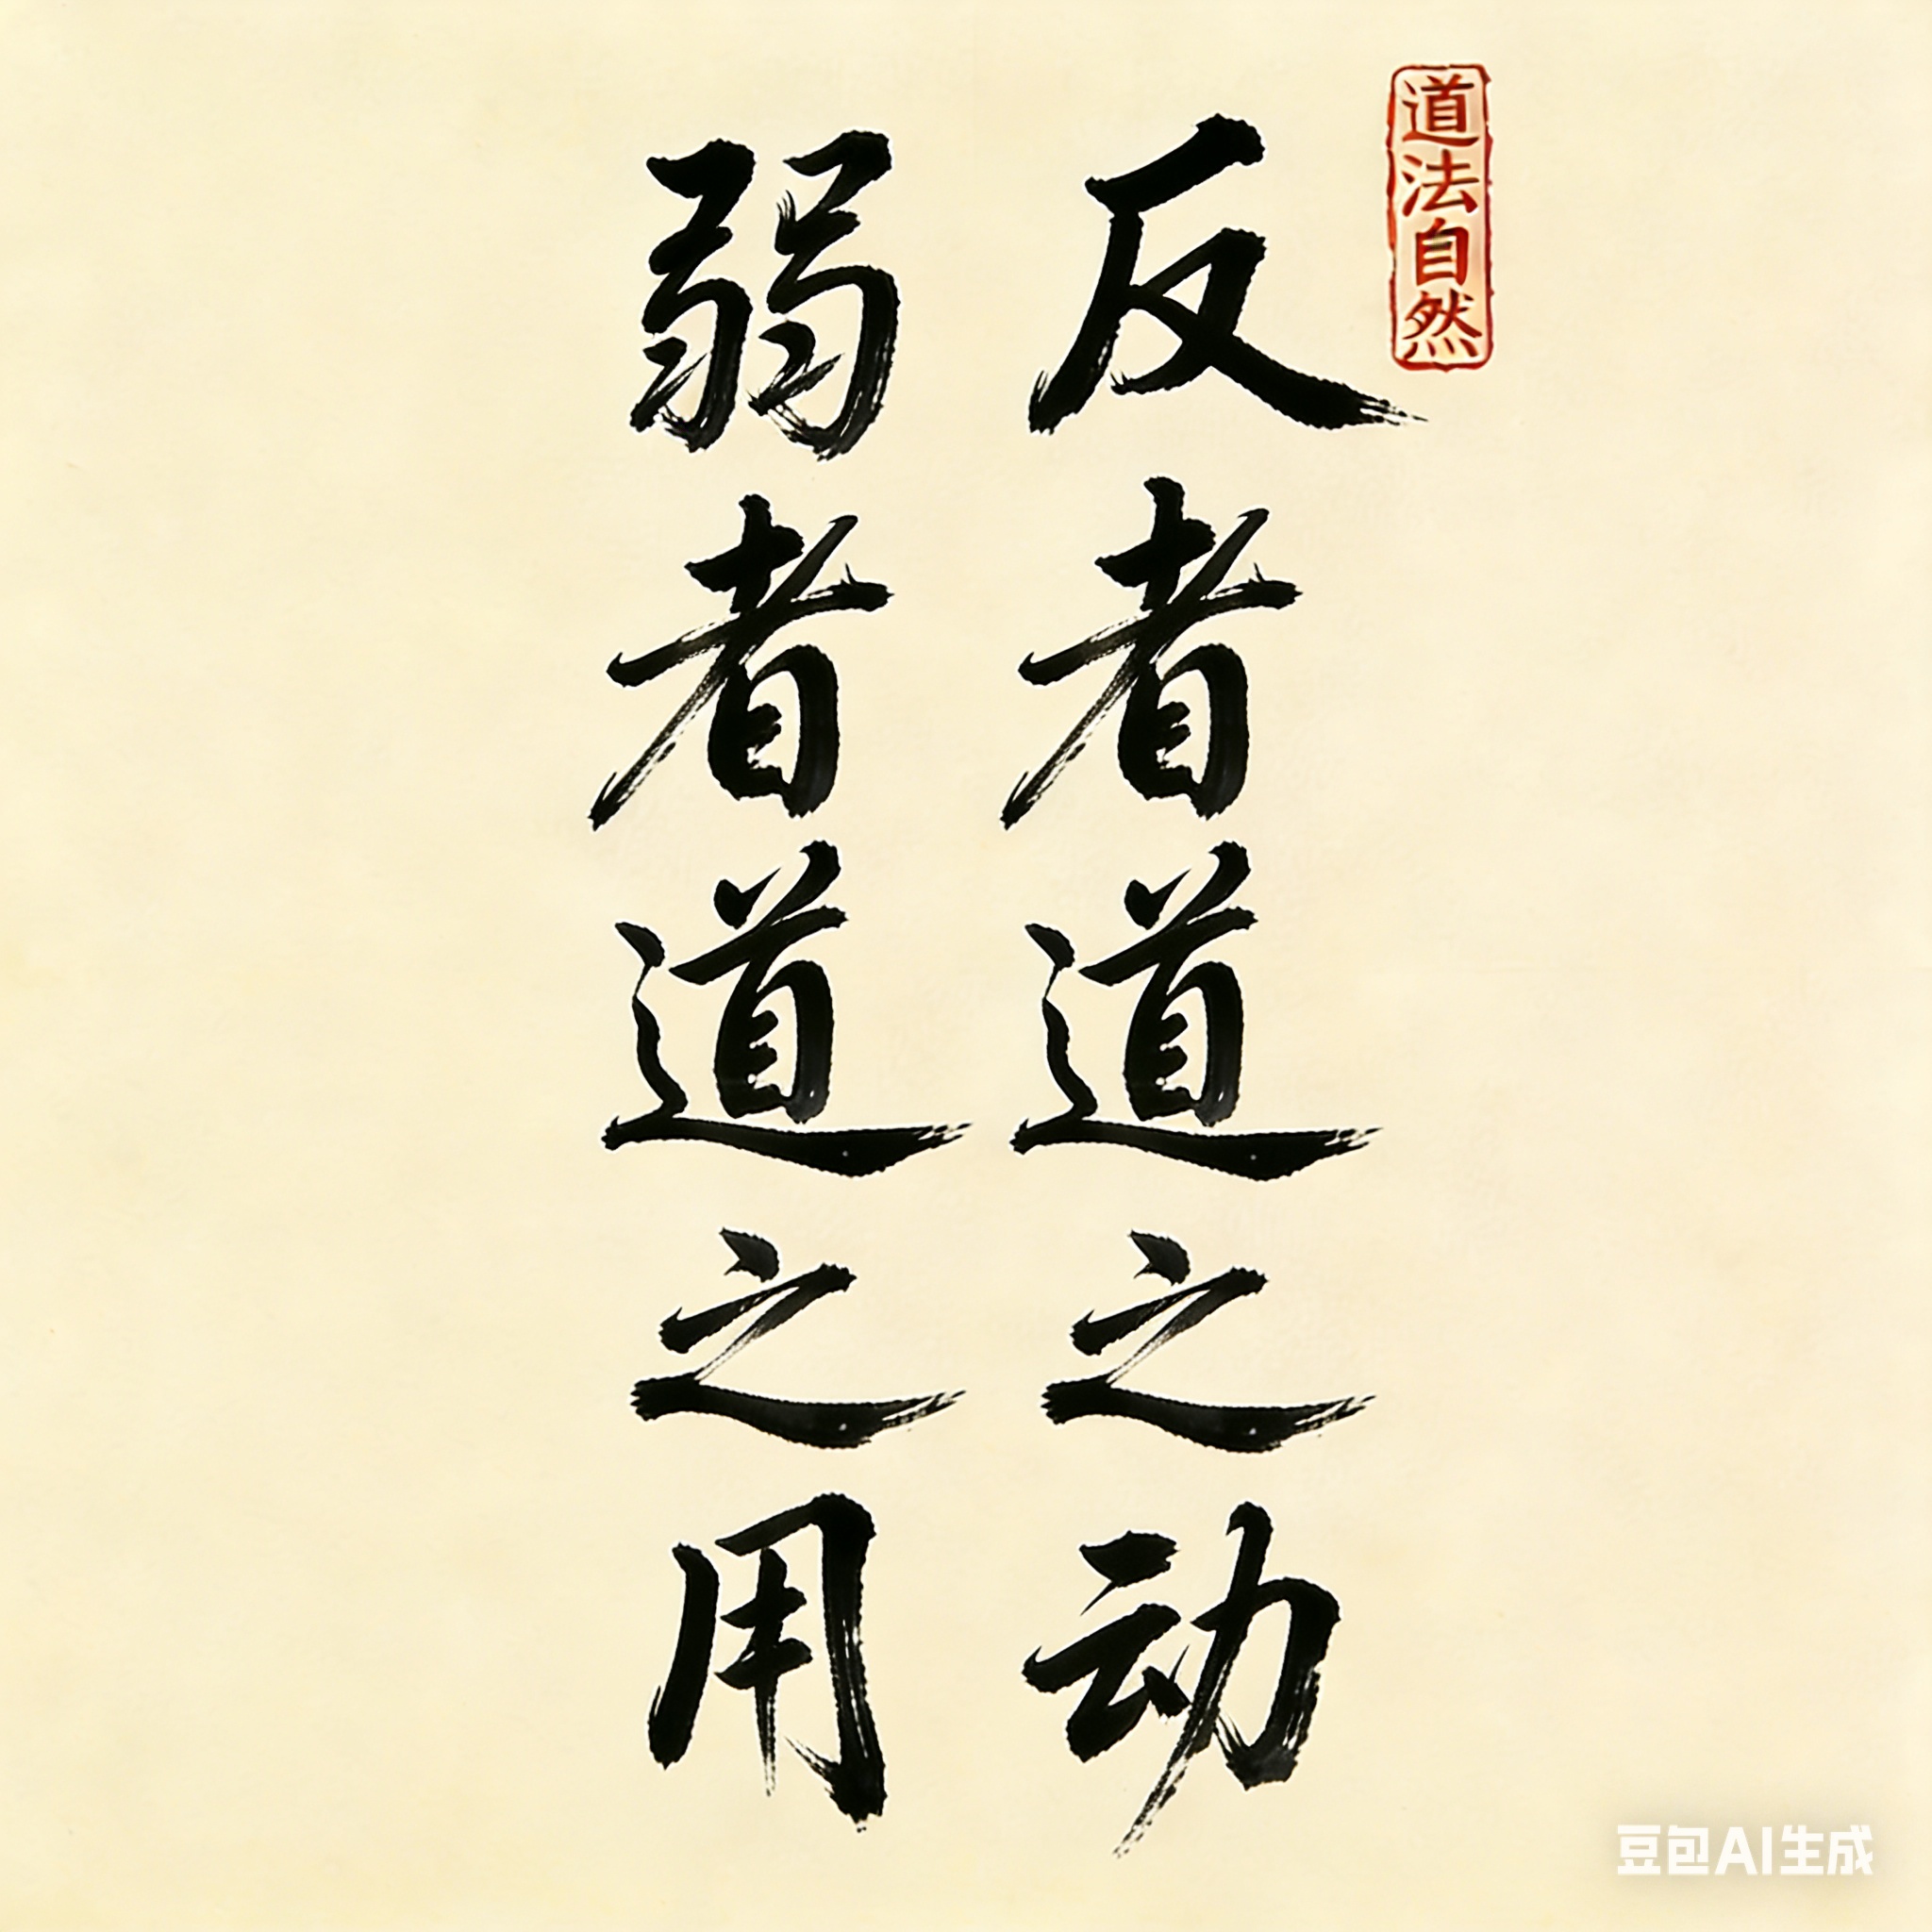 道法自然
反者道之动
弱者道之用
豆包AI生成